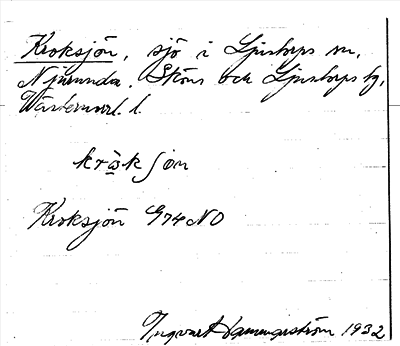 Kroksjön, sjö i Ljustorps sn,
Njurunda, Sköns och Ljustorps tg,
Västernorrl. l.
kròksjon
Kroksjön G74NO
Ingvar Hammarström 1932